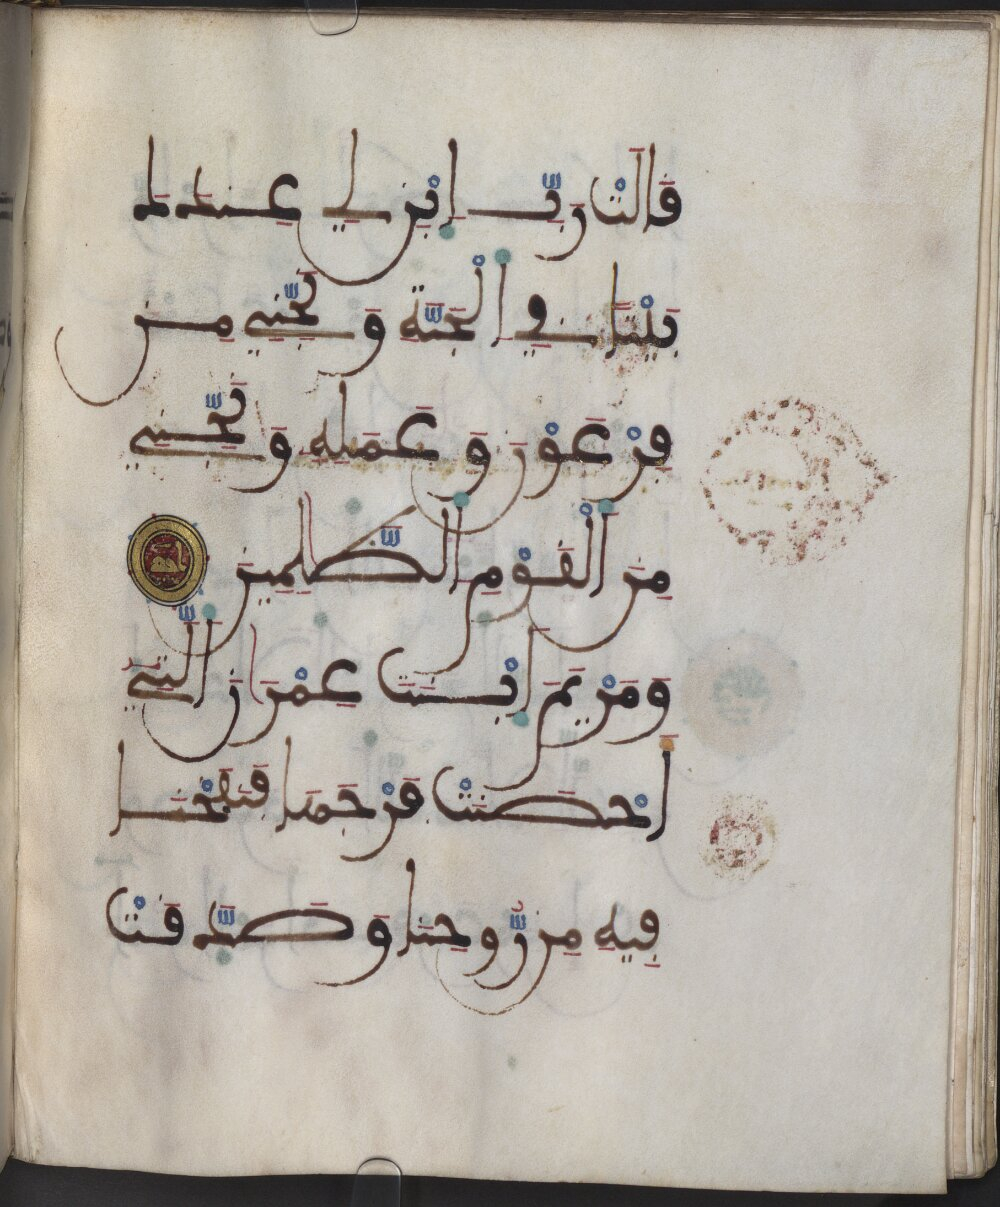 قَالَتْ رَبِّ اِبْنِ لِي عِندَكَ
بَيْتاً فِي اِ۬لْجَنَّةِ وَنَجِّنِي مِن
فِرْعَوْنَ وَعَمَلِهِ وَنَجِّنِي
مِنَ اَ۬لْقَوْمِ اِ۬لظَّٰلِمِينَ
وَمَرْيَمَ اَبْنَتَ عِمْرَٰنَ اَ۬لتِي
أَحْصَنَتْ فَرْجَهَا فَنَفَخْنَا
فِيهِ مِن رُّوحِنَا وَصَدَّقَتْ